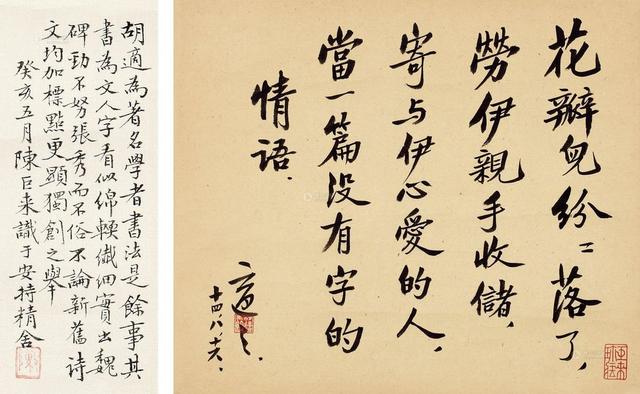 花瓣兒紛〻落了，
勞伊親手收儲，
寄与伊心愛的人，
當一篇没有字的
情语．
適之．
十四，八，十六，
胡適為著名學者書法是餘事其
書為文人字看似綿輭纖細實出魏
碑勁不努張秀而不俗不論新舊詩
文均加標點更顯獨創之舉
癸亥五月陳巨来識于安持精舍